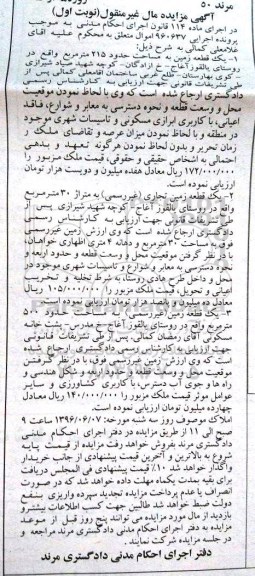 مرند ۵۰
آگهی مزایده مال غیرمنقول(نوبت اول)
در اجرای ماده ۱۱۴ قانون اجرای احکام مدنی به موجب
پرونده اجرایی ۹۶۰۶۳۷ اموال متعلق به محکوم علیه آقای
غلامعلی کمالی به شرح ذیل:
۱- یک قطعه زمین به مساحت حدود ۲۱۵ مترمربع واقع در
روستای یالقوز آغاج- خ آزادگان- کوچه شهید صیاد شیرازی
- کوی بهارستان- ضلع غربی ساختمان آقامعلی کمالی پس از
طی تشریفات قانونی جهت ارزیابی به کارشناس رسمی
دادگستری ارجاع شده است که وی با لحاظ نمودن کلیه جوانب
محل و وسعت قطعه و نحوه دسترسی به معابر و شوارع، فاقد
اعیانی، با کاربری ابرازی مسکونی و تاسیسات شهری موجود
در منطقه و با لحاظ نمودن میزان عرصه و تقاضای ملک در
زمان تحریر و بدون لحاظ نمودن هرگونه تعهد و بدهی
احتمالی به اشخاص حقیقی و حقوقی، قیمت ملک مزبور را
۱۷۲/۰۰۰/۰۰۰ ریال معادل هفده میلیون و دویست هزار تومان
ارزیابی نموده است.
۲- یک قطعه زمین تجاری (غیررسمی) به متراژ ۳۰ مترمربع
واقع در روستای یالقوز آغاج- کوچه شهید شیرازی پس از
طی تشریفات قانونی جهت ارزیابی به کارشناس رسمی
دادگستری ارجاع شده است که وی ارزش زمین غیررسمی
فوق به مساحت ۳۰ مترمربع و دهانه ۴ متری اظهاری خواهان،
با در نظر گرفتن موقعیت محل و وسعت قطعه و حدود اربعه و
نحوه دسترسی به معابر و شوارع و تاسیسات شهری موجود در
محل و داخل طرح هادی روستا، به شرط تخلیه و تخریب
اعیانی و تحویل، قیمت ملک مزبور را ۱۰۵/۰۰۰/۰۰۰ ریال
معادل ده میلیون و پانصد هزار تومان ارزیابی نموده است.
۳- یک قطعه زمین (غیررسمی) به مساحت حدود ۵۰۰
مترمربع واقع در روستای یالقوز آغاج- خ مدرس- پشت خانه
مسکونی آقای رمضان کمالی پس از طی تشریفات قانونی
جهت ارزیابی به کارشناس رسمی دادگستری ارجاع شده
است که وی ارزش زمین غیررسمی فوق، با در نظر گرفتن
موقعیت محل و وسعت قطعه و حدود اربعه و شکل هندسی و
راه ها و جوی آب دسترس، با کاربری کشاورزی و سایر
عوامل موثر قیمت ملک مزبور را ۱۴۰/۰۰۰/۰۰۰ ریال معادل
چهارده میلیون تومان ارزیابی نموده است.
املاک موصوف روز سه شنبه مورخه: ۱۳۹۶/۰۶/۰۷ ساعت ۹
صبح الی ۱۱ از طریق مزایده در دفتر اجرای احکام مدنی
دادگستری مرند بفروش خواهد رفت مزایده از قیمت پایه
شروع به بالاترین و آخرین قیمت پیشنهادی از جانب خریدار
واگذار خواهد شد ۱۰٪ قیمت پیشنهادی فی المجلس دریافت
برای بقیه بمدت یکماه مهلت داده خواهد شد که در صورت
انصراف یا عدم پرداخت مزایده تجدید سپرده واریزی بنفع
دولت ضبط خواهد شد طالبین جهت کسب اطلاعات بیشتر و
بازدید از مال مورد مزایده می توانند پنج روز قبل از موعد
مزایده به دفتر اجرای احکام مدنی دادگستری مرند مراجعه و
در جلسه مزایده شرکت نمایند.
دفتر اجرای احکام مدنی دادگستری مرند